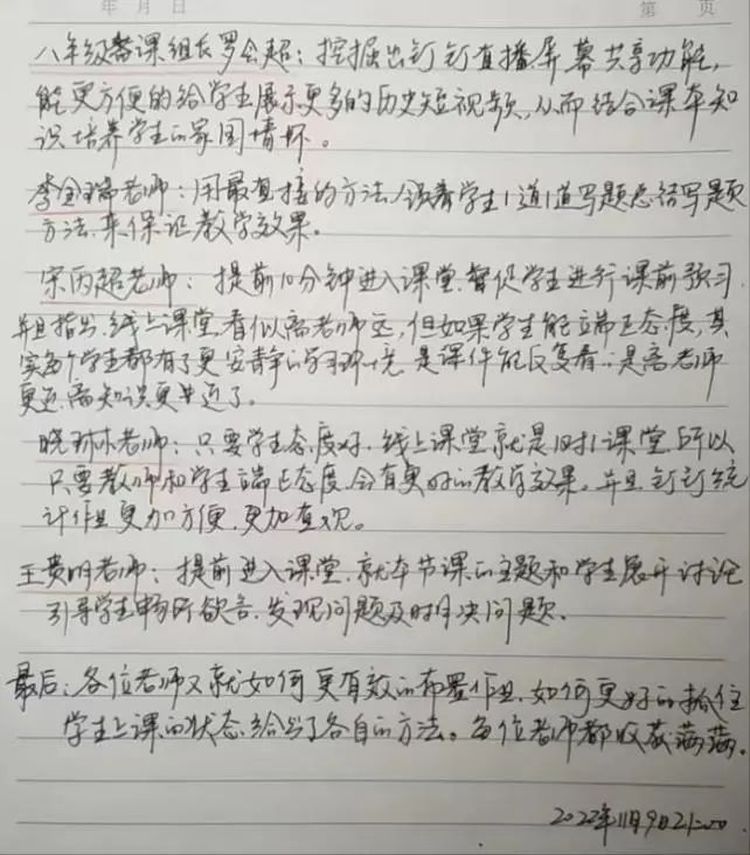 年 月 日 第 页
八年级备课组长罗会超：挖掘出钉钉直播屏幕共享功能，
能更方便的给学生展示更多的历史短视频，从而结合课本知
识培养学生的家国情怀。
李金瑞老师：用最直接的方法，领着学生1道1道写题总结写题
方法，来保证教学效果。
宋丙超老师：提前10分钟进入课堂，督促学生进行课前预习，
并且指出，线上课堂，看似离老师远，但如果学生能端正态度，其
实每个学生都有了更安静的学习环境，是课件能反复看，是离老师
更近，离知识更近了。
晓琳老师：只要学生态度好，线上课堂就是1对1课堂，所以
只要教师和学生端正态度，会有更好的教学效果。并且钉钉统
计作业更加方便，更加直观。
王贵明老师：提前进入课堂，就本节课的主题和学生展开讨论
引导学生畅所欲言，发现问题及时解决问题。
最后：各位老师又就如何更有效的布置作业，如何更好的抓住
学生上课的状态，给出了各自的方法。每位老师都收获满满。
2022年11月9日21:00